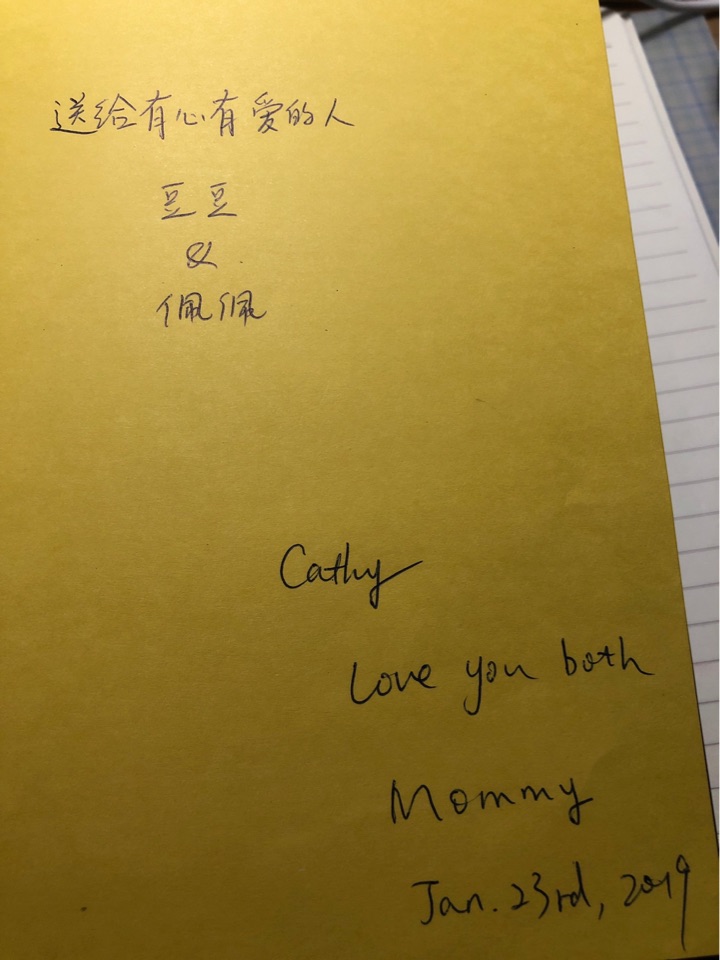 送给有心有爱的人
豆豆
&
佩佩
Cathy
Love you both
Mommy
Jan. 23rd, 2019